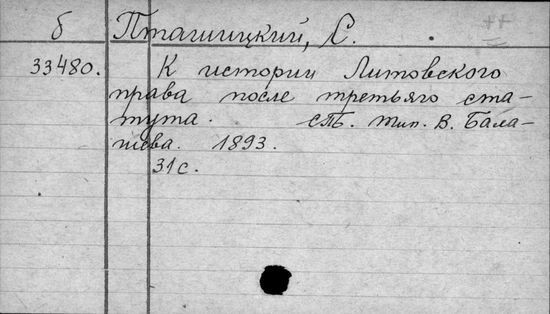 б Пташицкий, С.
33480. К истории Литовского
права после третьяго ста-
тута. СПб. тип. В. Бала-
шева. 1893.
31 с.